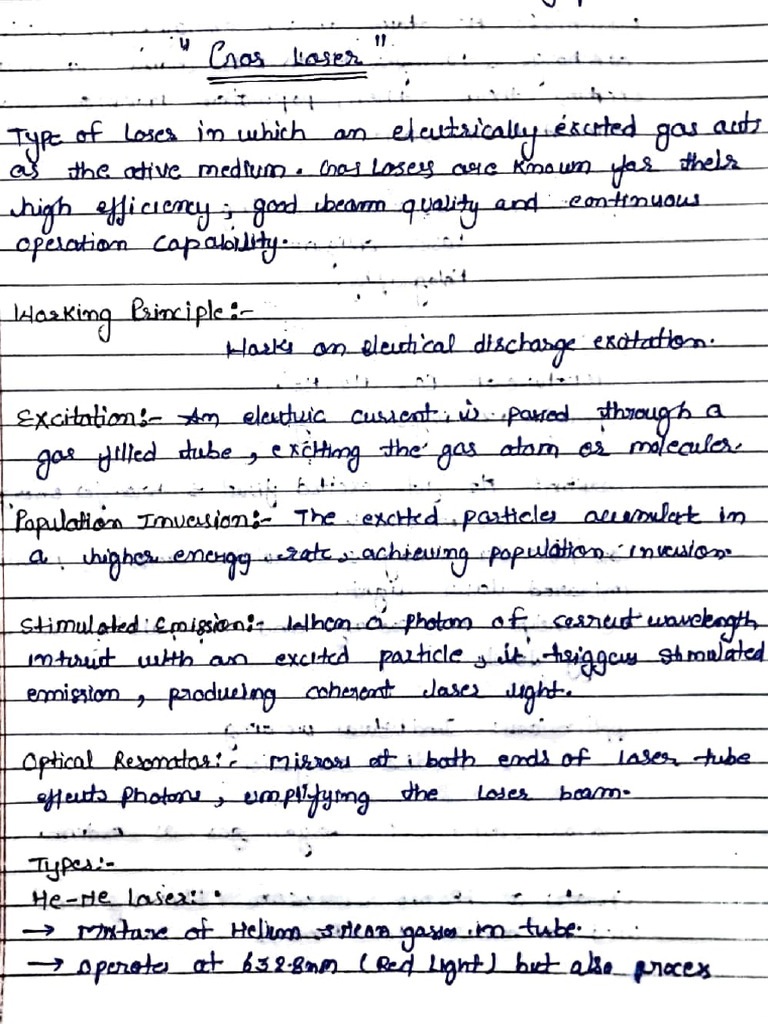 " Gas Laser "
Type of Laser in which an electrically excited gas acts
as the ative medium. Gas Lasers are known for their
high efficiency, good beam quality and continuous
operation capability.
Working Principle:-
Works on electical discharge excitation.
Excitation:- An electric current is passed through a
gas filled tube, exciting the gas atom or molecules.
Population Inversion:- The excited particles accumlate in
a higher energy rate, achieving population inversion
Stimulated Emission:- When a photon of correct wavelength
intract with an excited particle, it triggers stimulated
emission, producing coherent laser light.
Optical Resonator:- Mirrors at both ends of laser tube
effects Photons, amplifying the laser beam.
Types:-
He-Ne Laser:-
→ Mixture of Helium & neon gases in tube.
→ Operates at 632.8nm (Red Light) but also